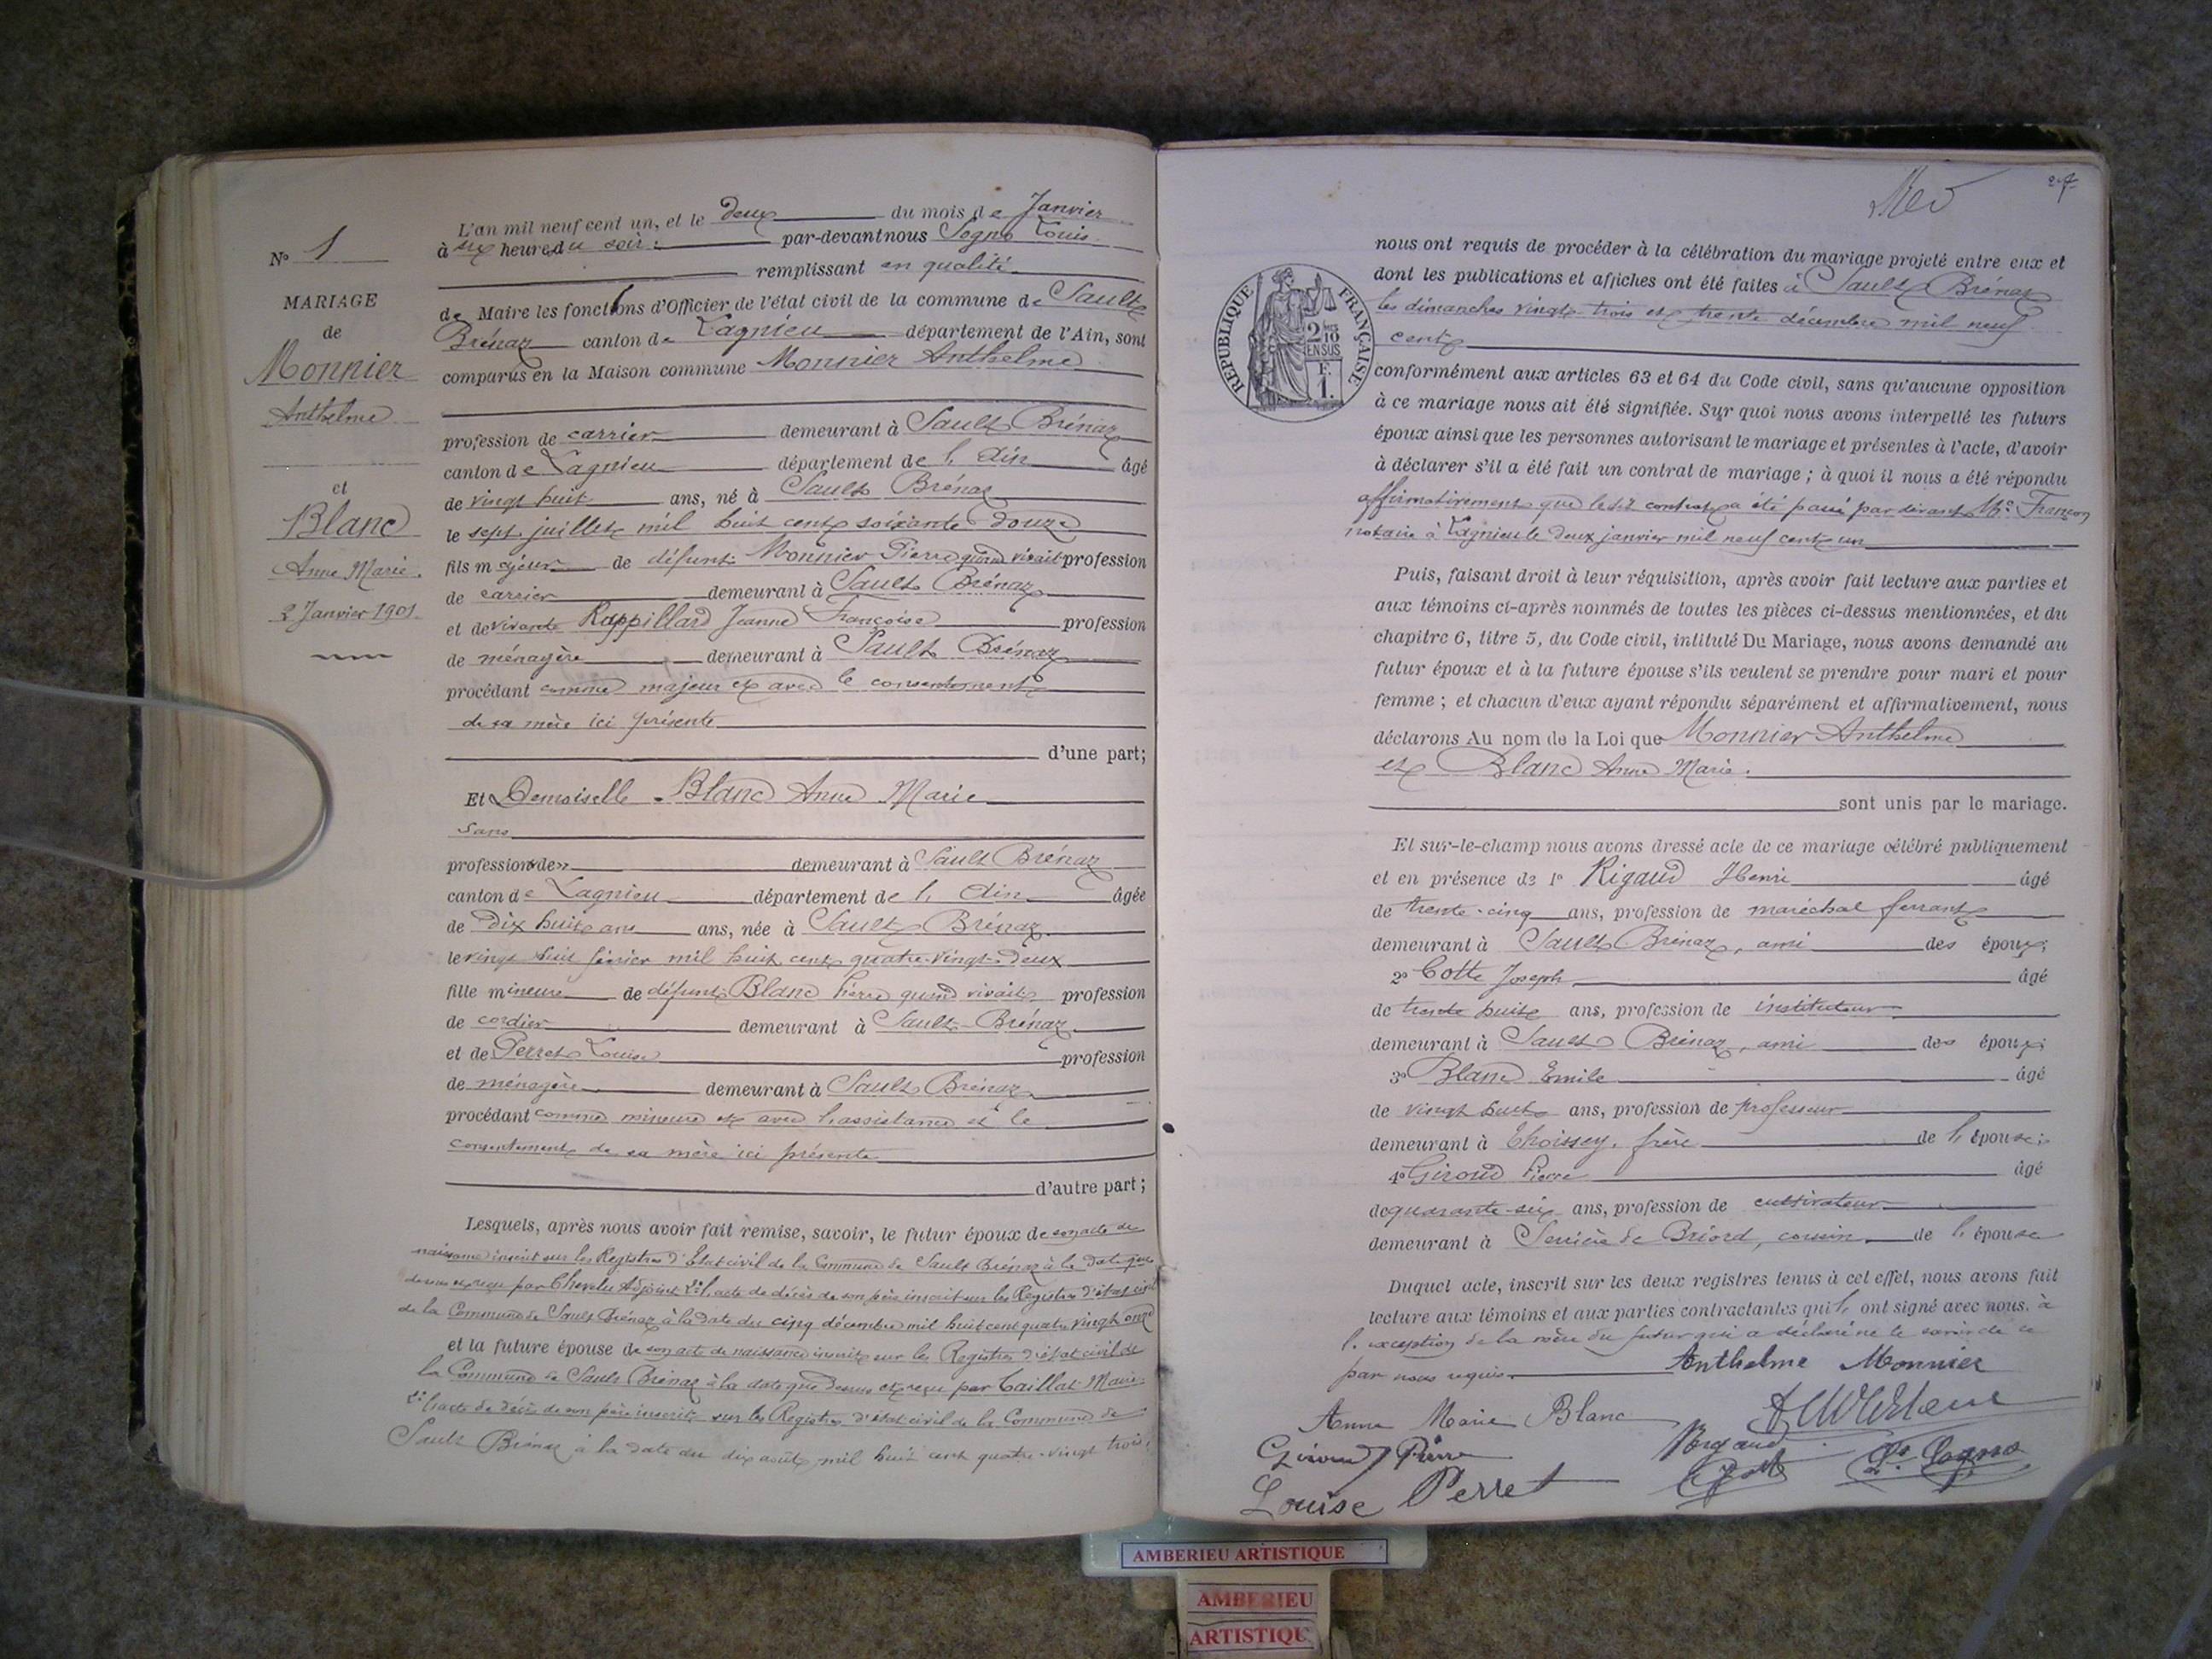 L'an mil neuf cent un, et le deux du mois de Janvier
à six heures du soir par-devant nous Sogno Louis
remplissant en qualité
de Maire les fonctions d'Officier de l'état civil de la commune de Sault
Brénaz canton de Lagnieu département de l'Ain, sont
comparus en la Maison commune Monnier Anthelme
profession de carrier demeurant à Sault Brénaz
canton de Lagnieu département de l'Ain âgé
de vingt huit ans, né à Sault Brénaz
le sept juillet mil huit cent soixante douze
fils majeur de défunt Monnier Pierre quand vivait profession
de carrier demeurant à Sault Brénaz
et de vivante Rappillard Jeanne Françoise profession
de ménagère demeurant à Sault Brénaz
procédant comme majeur et avec le consentement
de sa mère ici présente
d'une part;
Et Demoiselle Blanc Anne Marie
sans
profession de demeurant à Sault Brénaz
canton de Lagnieu département de l'Ain âgée
de Dix huit ans ans, née à Sault Brénaz
le vingt huit février mil huit cent quatre-vingt-deux
fille mineure de défunt Blanc Pierre quand vivait profession
de cordier demeurant à Sault-Brénaz
et de Perret Louise profession
de ménagère demeurant à Sault Brénaz
procédant comme mineure et avec l'assistance et le
consentement de sa mère ici présente
d'autre part;
Lesquels, après nous avoir fait remise, savoir, le futur époux de son acte de
naissance inscrit sur les Registres d'Etat civil de la Commune de Sault Brénaz à la date que
dessus et reçu par Chevelu Adjoint 2° l'acte de décès de son père inscrit sur les Registres d'état civil
de la Commune de Sault Brénaz à la date du cinq décembre mil huit cent quatre vingt onze
et la future épouse de son acte de naissance inscrit sur les Registres d'état civil de
la Commune de Sault Brénaz à la date que dessus et reçu par Caillat Maire
2° l'acte de décès de son père inscrit sur les Registres d'état civil de la Commune de
Sault Brénaz à la date du dix août mil huit cent quatre-vingt trois.
N° 1
MARIAGE
de
Monnier
Anthelme
et
Blanc
Anne Marie.
2 Janvier 1901
27
RÉPUBLIQUE FRANÇAISE
nous ont requis de procéder à la célébration du mariage projeté entre eux et
dont les publications et affiches ont été faites à Sault Brénaz
les dimanches vingt-trois et trente décembre mil neuf
cent
conformément aux articles 63 et 64 du Code civil, sans qu'aucune opposition
à ce mariage nous ait été signifiée. Sur quoi nous avons interpellé les futurs
époux ainsi que les personnes autorisant le mariage et présentes à l'acte, d'avoir
à déclarer s'il a été fait un contrat de mariage; à quoi il nous a été répondu
affirmativement que ledit contrat a été passé par devant Me Françon
notaire à Lagnieu le deux janvier mil neuf cent un
Puis, faisant droit à leur réquisition, après avoir fait lecture aux parties et
aux témoins ci-après nommés de toutes les pièces ci-dessus mentionnées, et du
chapitre 6, titre 5, du Code civil, intitulé Du Mariage, nous avons demandé au
futur époux et à la future épouse s'ils veulent se prendre pour mari et pour
femme; et chacun d'eux ayant répondu séparément et affirmativement, nous
déclarons Au nom de la Loi que Monnier Anthelme
et Blanc Anne Marie.
sont unis par le mariage.
Et sur-le-champ nous avons dressé acte de ce mariage célébré publiquement
et en présence de 1° Rigaud Henri âgé
de trente-cinq ans, profession de maréchal ferrant
demeurant à Sault Brénaz, ami des époux;
2° Cotte Joseph âgé
de trente huit ans, profession de instituteur
demeurant à Sault Brénaz, ami des époux;
3° Blanc Emile âgé
de vingt huit ans, profession de professeur
demeurant à Thoissey, frère de l'épouse;
4° Giroud Pierre âgé
de quarante-six ans, profession de cultivateur
demeurant à Serrière de Briord, cousin de l'épouse
Duquel acte, inscrit sur les deux registres tenus à cet effet, nous avons fait
lecture aux témoins et aux parties contractantes qui l'ont signé avec nous, à
l'exception de la mère du futur qui a déclaré ne le savoir de ce
par nous requis
Anthelme Monnier
Anne Marie Blanc
Giroud Pierre Rigaud
Louise Perret Cotte Ls. Sogno
AMBERIEU ARTISTIQUE
AMBERIEU
ARTISTIQUE